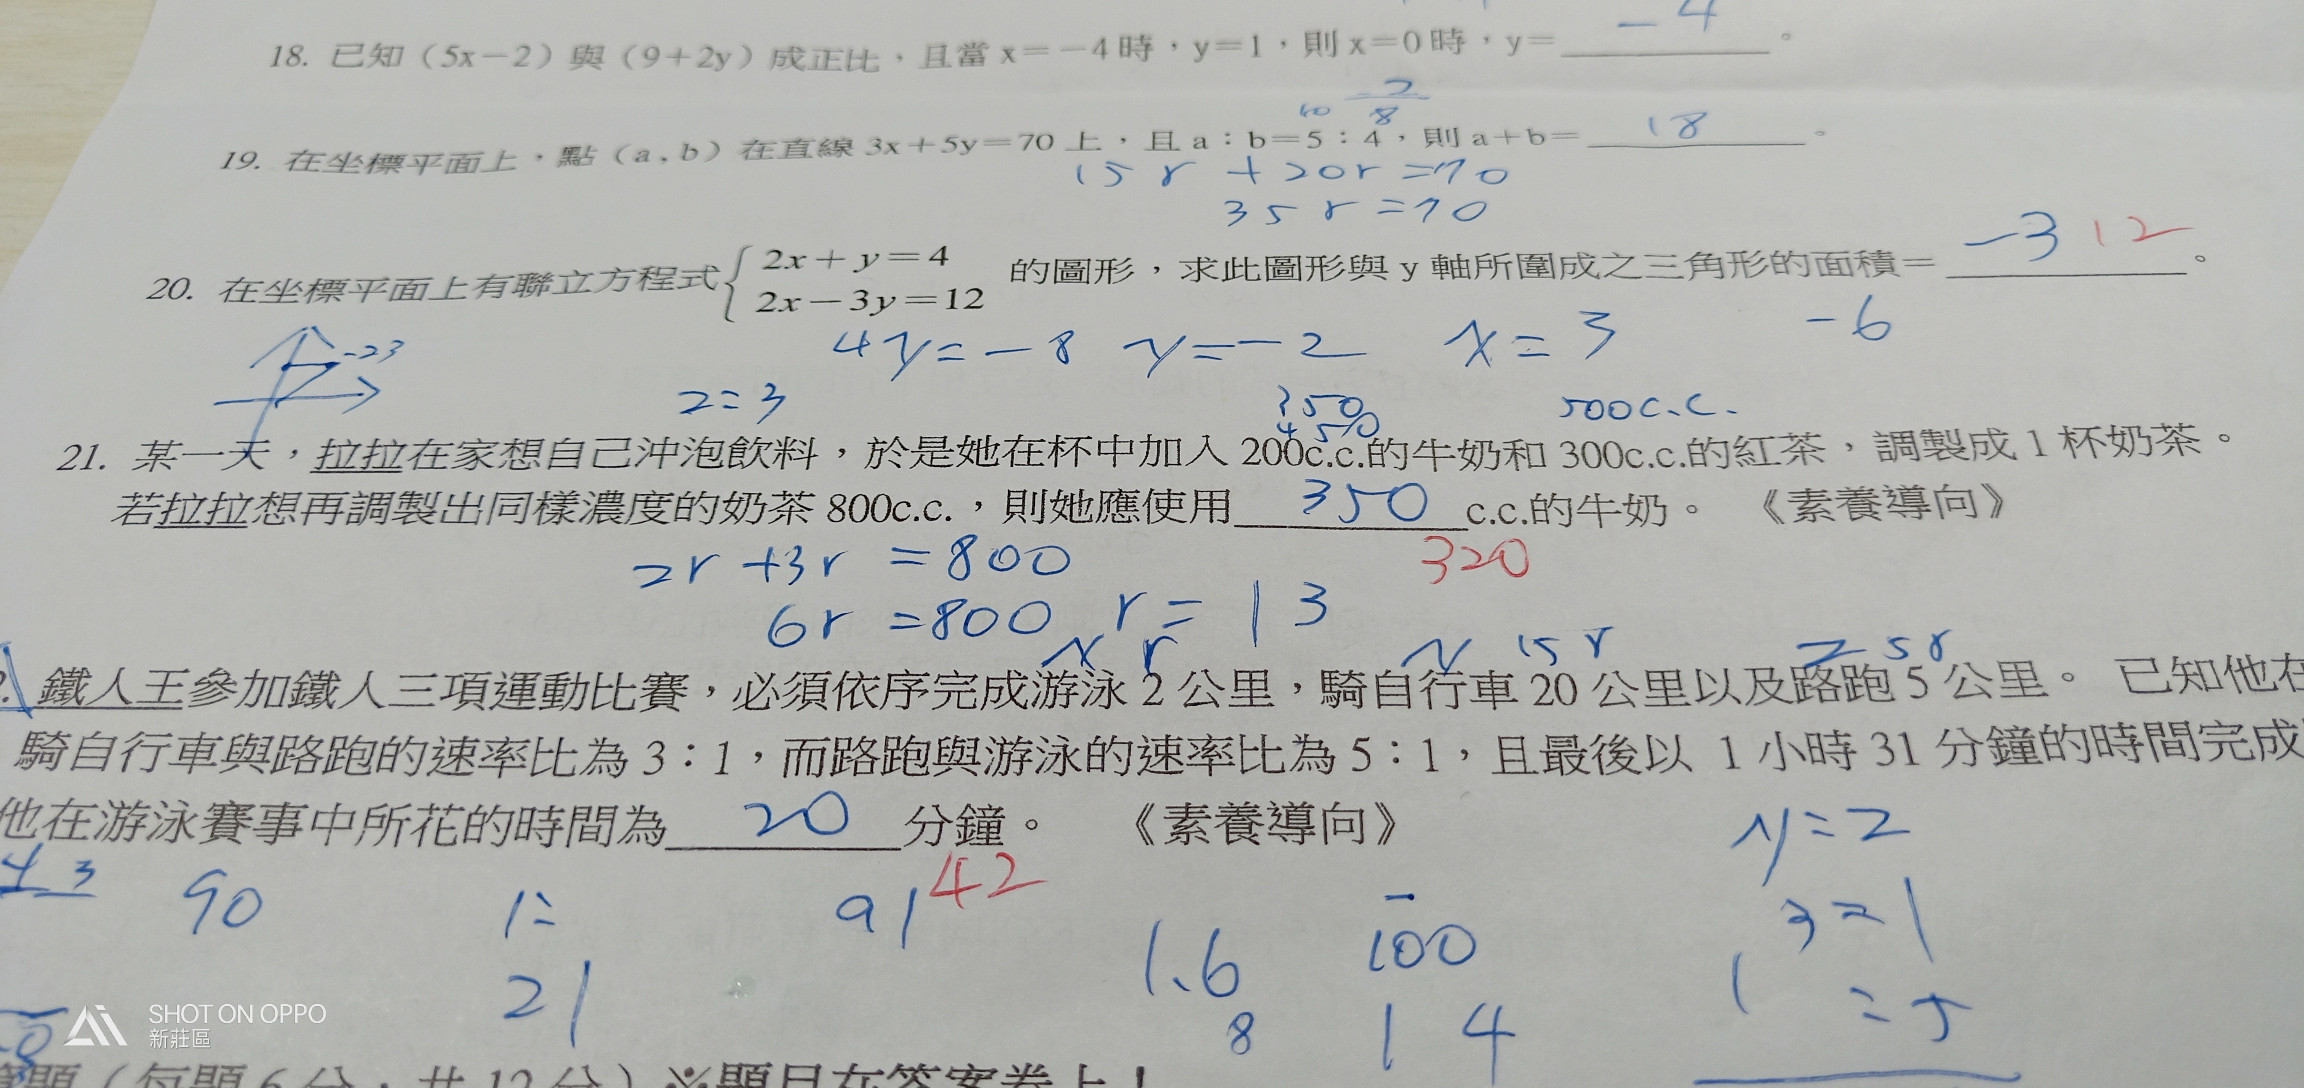 -4
18. 已知(5x-2)與(9+2y)成正比,且當x=-4時,y=1,則x=0時,y=________。
-2
10 8
19. 在坐標平面上,點(a,b)在直線3x+5y=70上,且a:b=5:4,則a+b= 18 。
15r+20r=70
35r=70
20. 在坐標平面上有聯立方程式{2x+y=4 的圖形,求此圖形與y軸所圍成之三角形的面積= -3 12 。
2x-3y=12
4y=-8 y=-2 x=3 -6
-23
2=3 350 500c.c.
450
21. 某一天,拉拉在家想自己沖泡飲料,於是她在杯中加入200c.c.的牛奶和300c.c.的紅茶,調製成1杯奶茶。
若拉拉想再調製出同樣濃度的奶茶800c.c.,則她應使用 350 c.c.的牛奶。 《素養導向》
2r+3r=800 320
6r=800 r=13
x r y 15r z 5r
鐵人王參加鐵人三項運動比賽,必須依序完成游泳2公里,騎自行車20公里以及路跑5公里。 已知他在
騎自行車與路跑的速率比為3:1,而路跑與游泳的速率比為5:1,且最後以 1小時31分鐘的時間完成
他在游泳賽事中所花的時間為 20 分鐘。 《素養導向》
42
y=2
43 90 1= 91
3=1
1.6 100
21 1=5
8 14
SHOT ON OPPO
新莊區
題(每題6分,共12分)※題目在答案卷上!